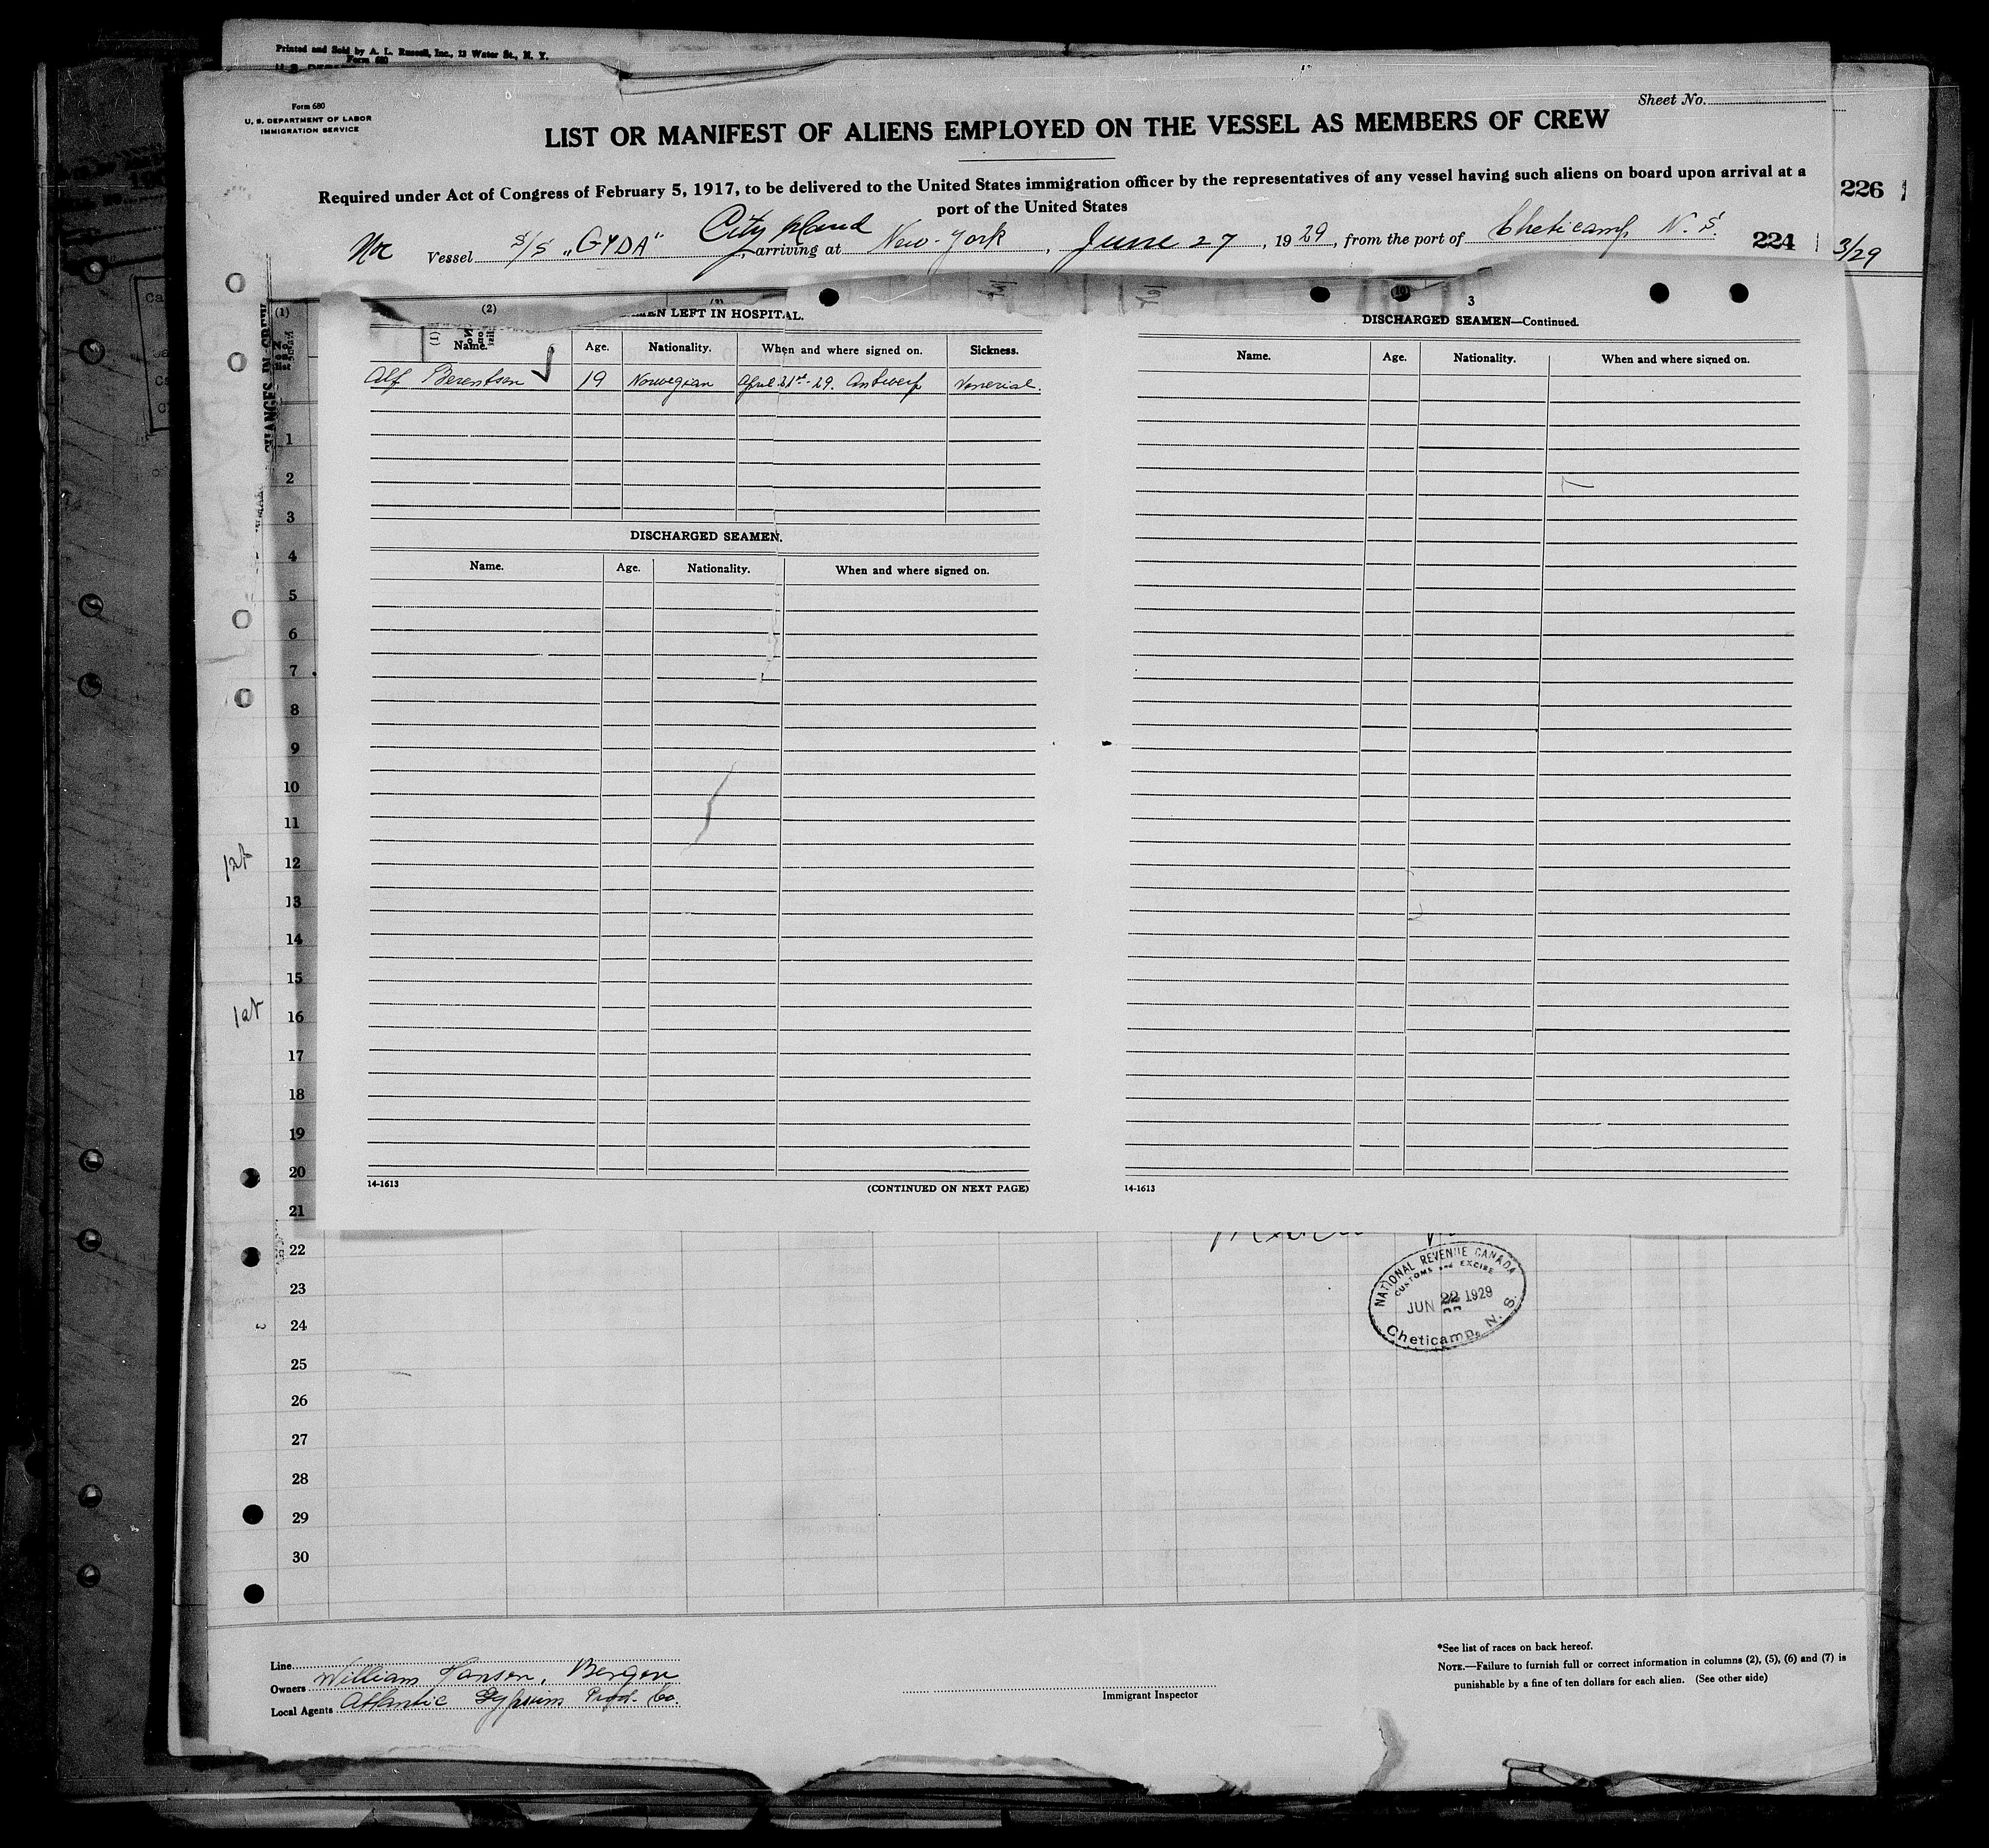 Printed and Sold by A. L. Russell, Inc., 12 Water St., N. Y.
Form 680
Form 680
U. S. DEPARTMENT OF LABOR
IMMIGRATION SERVICE
Sheet No.
LIST OR MANIFEST OF ALIENS EMPLOYED ON THE VESSEL AS MEMBERS OF CREW
Required under Act of Congress of February 5, 1917, to be delivered to the United States immigration officer by the representatives of any vessel having such aliens on board upon arrival at a
port of the United States
226
City Island
Vessel S/S "GYDA", arriving at New-York, June 27, 1929, from the port of Cheticamp N. S.
224
3/29
(1) (2) (3) (10)
3
LEFT IN HOSPITAL.
DISCHARGED SEAMEN—Continued.
Name. Age. Nationality. When and where signed on. Sickness.
Name. Age. Nationality. When and where signed on.
Alf Berentsen 19 Norwegian April 21st-29. Antwerp Venerial.
CHANGES IN CREW
1
2
3
DISCHARGED SEAMEN.
4
Name. Age. Nationality. When and where signed on.
5
6
7
8
9
10
11
12
13
14
15
16
17
18
19
20
14-1613 (CONTINUED ON NEXT PAGE)
14-1613
21
22
23
24
25
26
27
28
29
30
NATIONAL REVENUE CANADA
CUSTOMS and EXCISE
JUN 22 1929
Cheticamp, N. S.
Line
Owners William Hansen, Bergen
Local Agents Atlantic Gypsum Prod. Co.
Immigrant Inspector
*See list of races on back hereof.
NOTE.—Failure to furnish full or correct information in columns (2), (5), (6) and (7) is
punishable by a fine of ten dollars for each alien. (See other side)